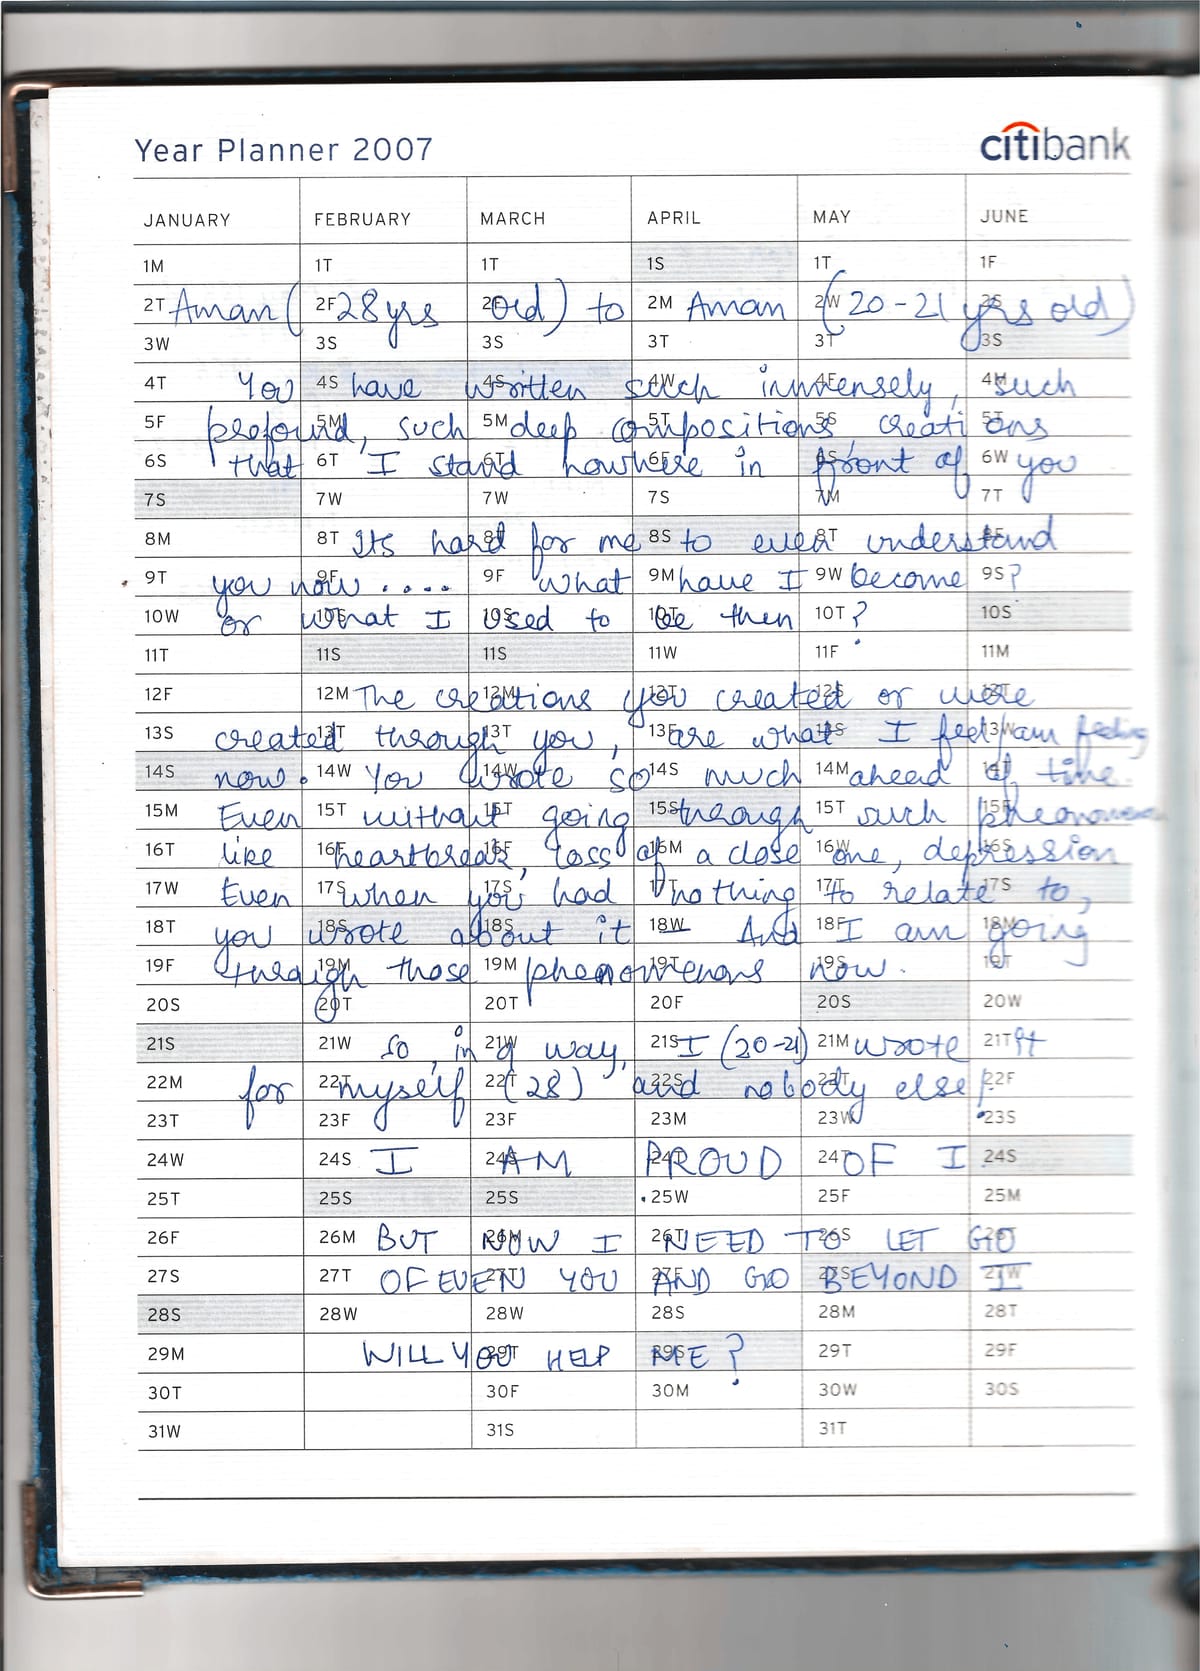 Year Planner 2007 citibank
JANUARY FEBRUARY MARCH APRIL MAY JUNE
1M 1T 1T 1S 1T 1F
2T 2F 2F 2M 2W 2S
Aman (28yrs old) to Aman (20-21 yrs old)
3W 3S 3S 3T 3T 3S
4T 4S 4S 4W 4F 4M
You have written such immensely, such
5F 5M 5M 5T 5S 5T
profound, such deep compositions, creations
6S 6T 6T 6F 6S 6W
that I stand nowhere in front of you
7S 7W 7W 7S 7M 7T
8M 8T 8T 8S 8T 8F
Its hard for me to even understand
9T 9F 9F 9M 9W 9S
you now..... what have I become?
10W 10S 10S 10T 10T 10S
or what I used to be then?
11T 11S 11S 11W 11F 11M
12F 12M 12M 12T 12F 12T
The creations you created or were
13S 13T 13T 13F 13S 13W
created through you, are what I feel/am feeling
14S 14W 14W 14S 14M 14T
now. You wrote so much ahead of time.
15M 15T 15T 15S 15T 15F
Even without going through such
16T 16F 16F 16M 16W 16S
like heartbreak, loss of a close one, depression
17W 17S 17S 17T 17T 17S
Even when you had nothing to relate to,
18T 18S 18S 18W 18F 18M
you wrote about it And I am going
19F 19M 19M 19T 19S 19T
through those phenomenons now.
20S 20T 20T 20F 20S 20W
21S 21W 21W 21S 21M 21T
So, in a way, I (20-21) wrote it
22M 22T 22T 22S 22T 22F
for myself (28) and nobody else!
23T 23F 23F 23M 23W 23S
24W 24S 24S 24T 24T 24S
I AM PROUD OF I
25T 25S 25S 25W 25F 25M
26F 26M 26M 26T 26S 26T
BUT NOW I NEED TO LET GO
27S 27T 27T 27F 27S 27W
OF EVEN YOU AND GO BEYOND I
28S 28W 28W 28S 28M 28T
29M 29T 29S 29T 29F
WILL YOU HELP ME?
30T 30F 30M 30W 30S
31W 31S 31T